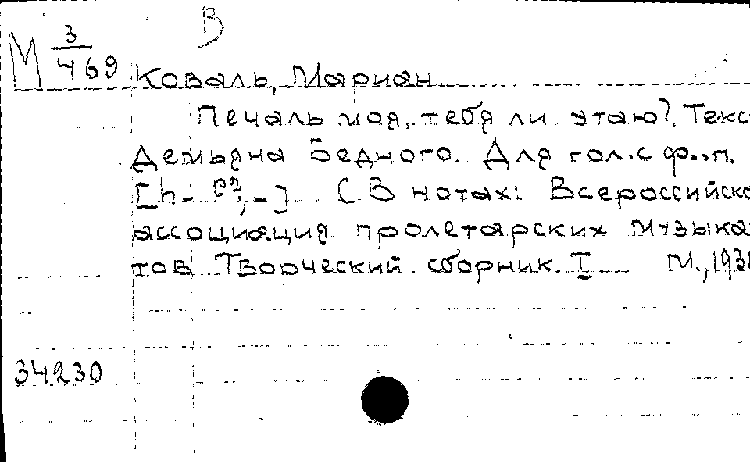 В
М 3/469
Коваль, Мариан
Печаль моя, тебя ли утаю? Текс
Демьяна Бедного. Для гол. с ф.-п.
[h- –] (В нотах: Всероссийско
ассоциация пролетарских музыка
тов Творческий сборник. I М., 193
34230